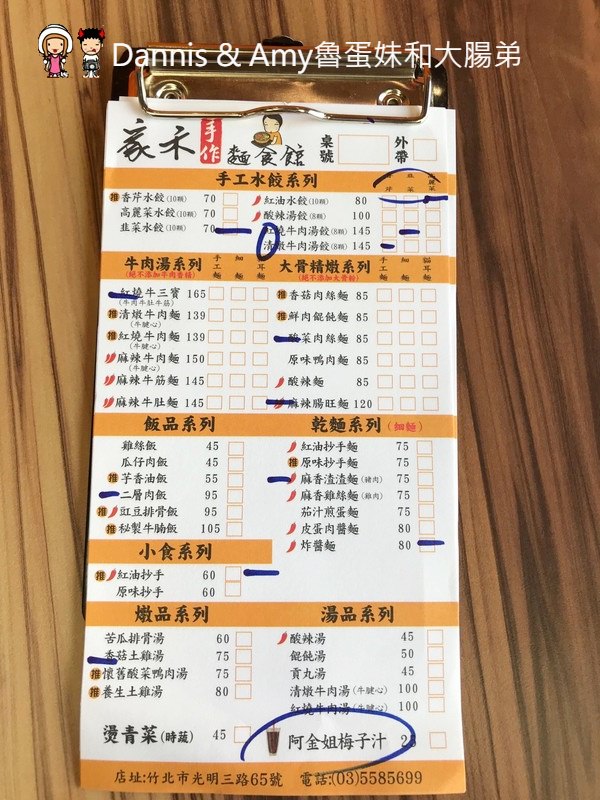 Dannis & Amy魯蛋妹和大腸弟
豪禾 手作 麵食館 桌號 外帶
手工水餃系列
推 香芹水餃(10顆) 70
高麗菜水餃(10顆) 70
韭菜水餃(10顆) 70
紅油水餃(10顆) 80
酸辣湯餃(8顆) 100
紅燒牛肉湯餃(8顆) 145
清燉牛肉湯餃(8顆) 145
牛肉湯系列 手工麵 細麵 貓耳麵
(絕不添加牛肉香精)
紅燒牛三寶 165
(牛肉牛肚牛筋)
推 清燉牛肉麵 139
(牛腱心)
推 紅燒牛肉麵 139
(牛腱心)
麻辣牛肉麵 150
(牛腱心)
麻辣牛筋麵 145
麻辣牛肚麵 145
大骨精燉系列 手工麵 細麵 貓耳麵
(絕不添加大骨粉)
推 香菇肉絲麵 85
推 鮮肉餛飩麵 85
酸菜肉絲麵 85
原味鴨肉麵 85
酸辣麵 85
麻辣腸旺麵 120
飯品系列
雞絲飯 45
瓜仔肉飯 45
推 芋香油飯 55
二層肉飯 95
推 豆豆排骨飯 95
推 秘製牛腩飯 105
乾麵系列(細麵)
紅油抄手麵 75
推 原味抄手麵 75
麻香渣渣麵(豬肉) 75
麻香雞絲麵(雞肉) 75
茄汁煎蛋麵 75
皮蛋肉醬麵 80
炸醬麵 80
小食系列
推 紅油抄手 60
原味抄手 60
燉品系列
苦瓜排骨湯 60
香菇土雞湯 75
推 懷舊酸菜鴨肉湯 75
推 養生土雞湯 80
湯品系列
酸辣湯 45
餛飩湯 50
貢丸湯 45
清燉牛肉湯(牛腱心) 100
紅燒牛肉湯(牛腱心) 100
燙青菜(時蔬) 45
阿金姐梅子汁 25
店址:竹北市光明三路65號 電話:(03)5585699